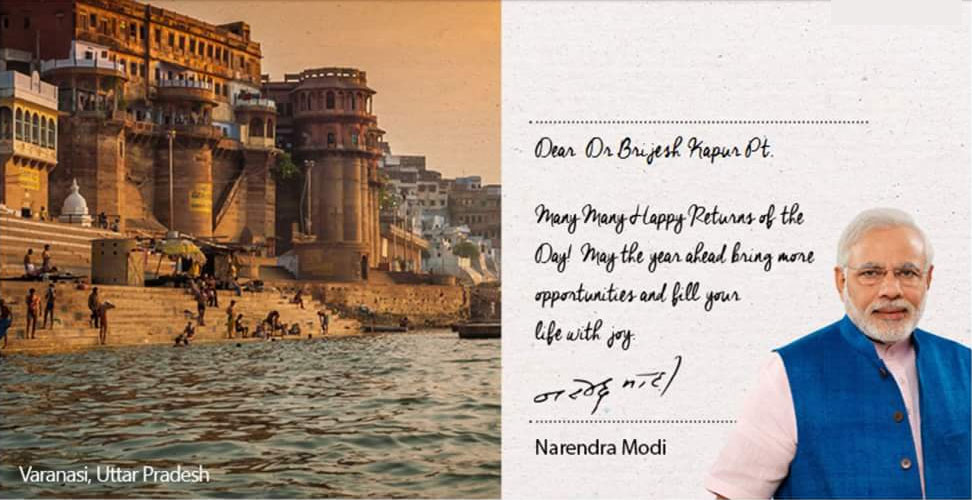 Dear Dr Brijesh Kapur Pt.
Many Many Happy Returns of the
Day! May the year ahead bring more
opportunities and fill your
life with joy.
नरेन्द्र मोदी
Narendra Modi
Varanasi, Uttar Pradesh